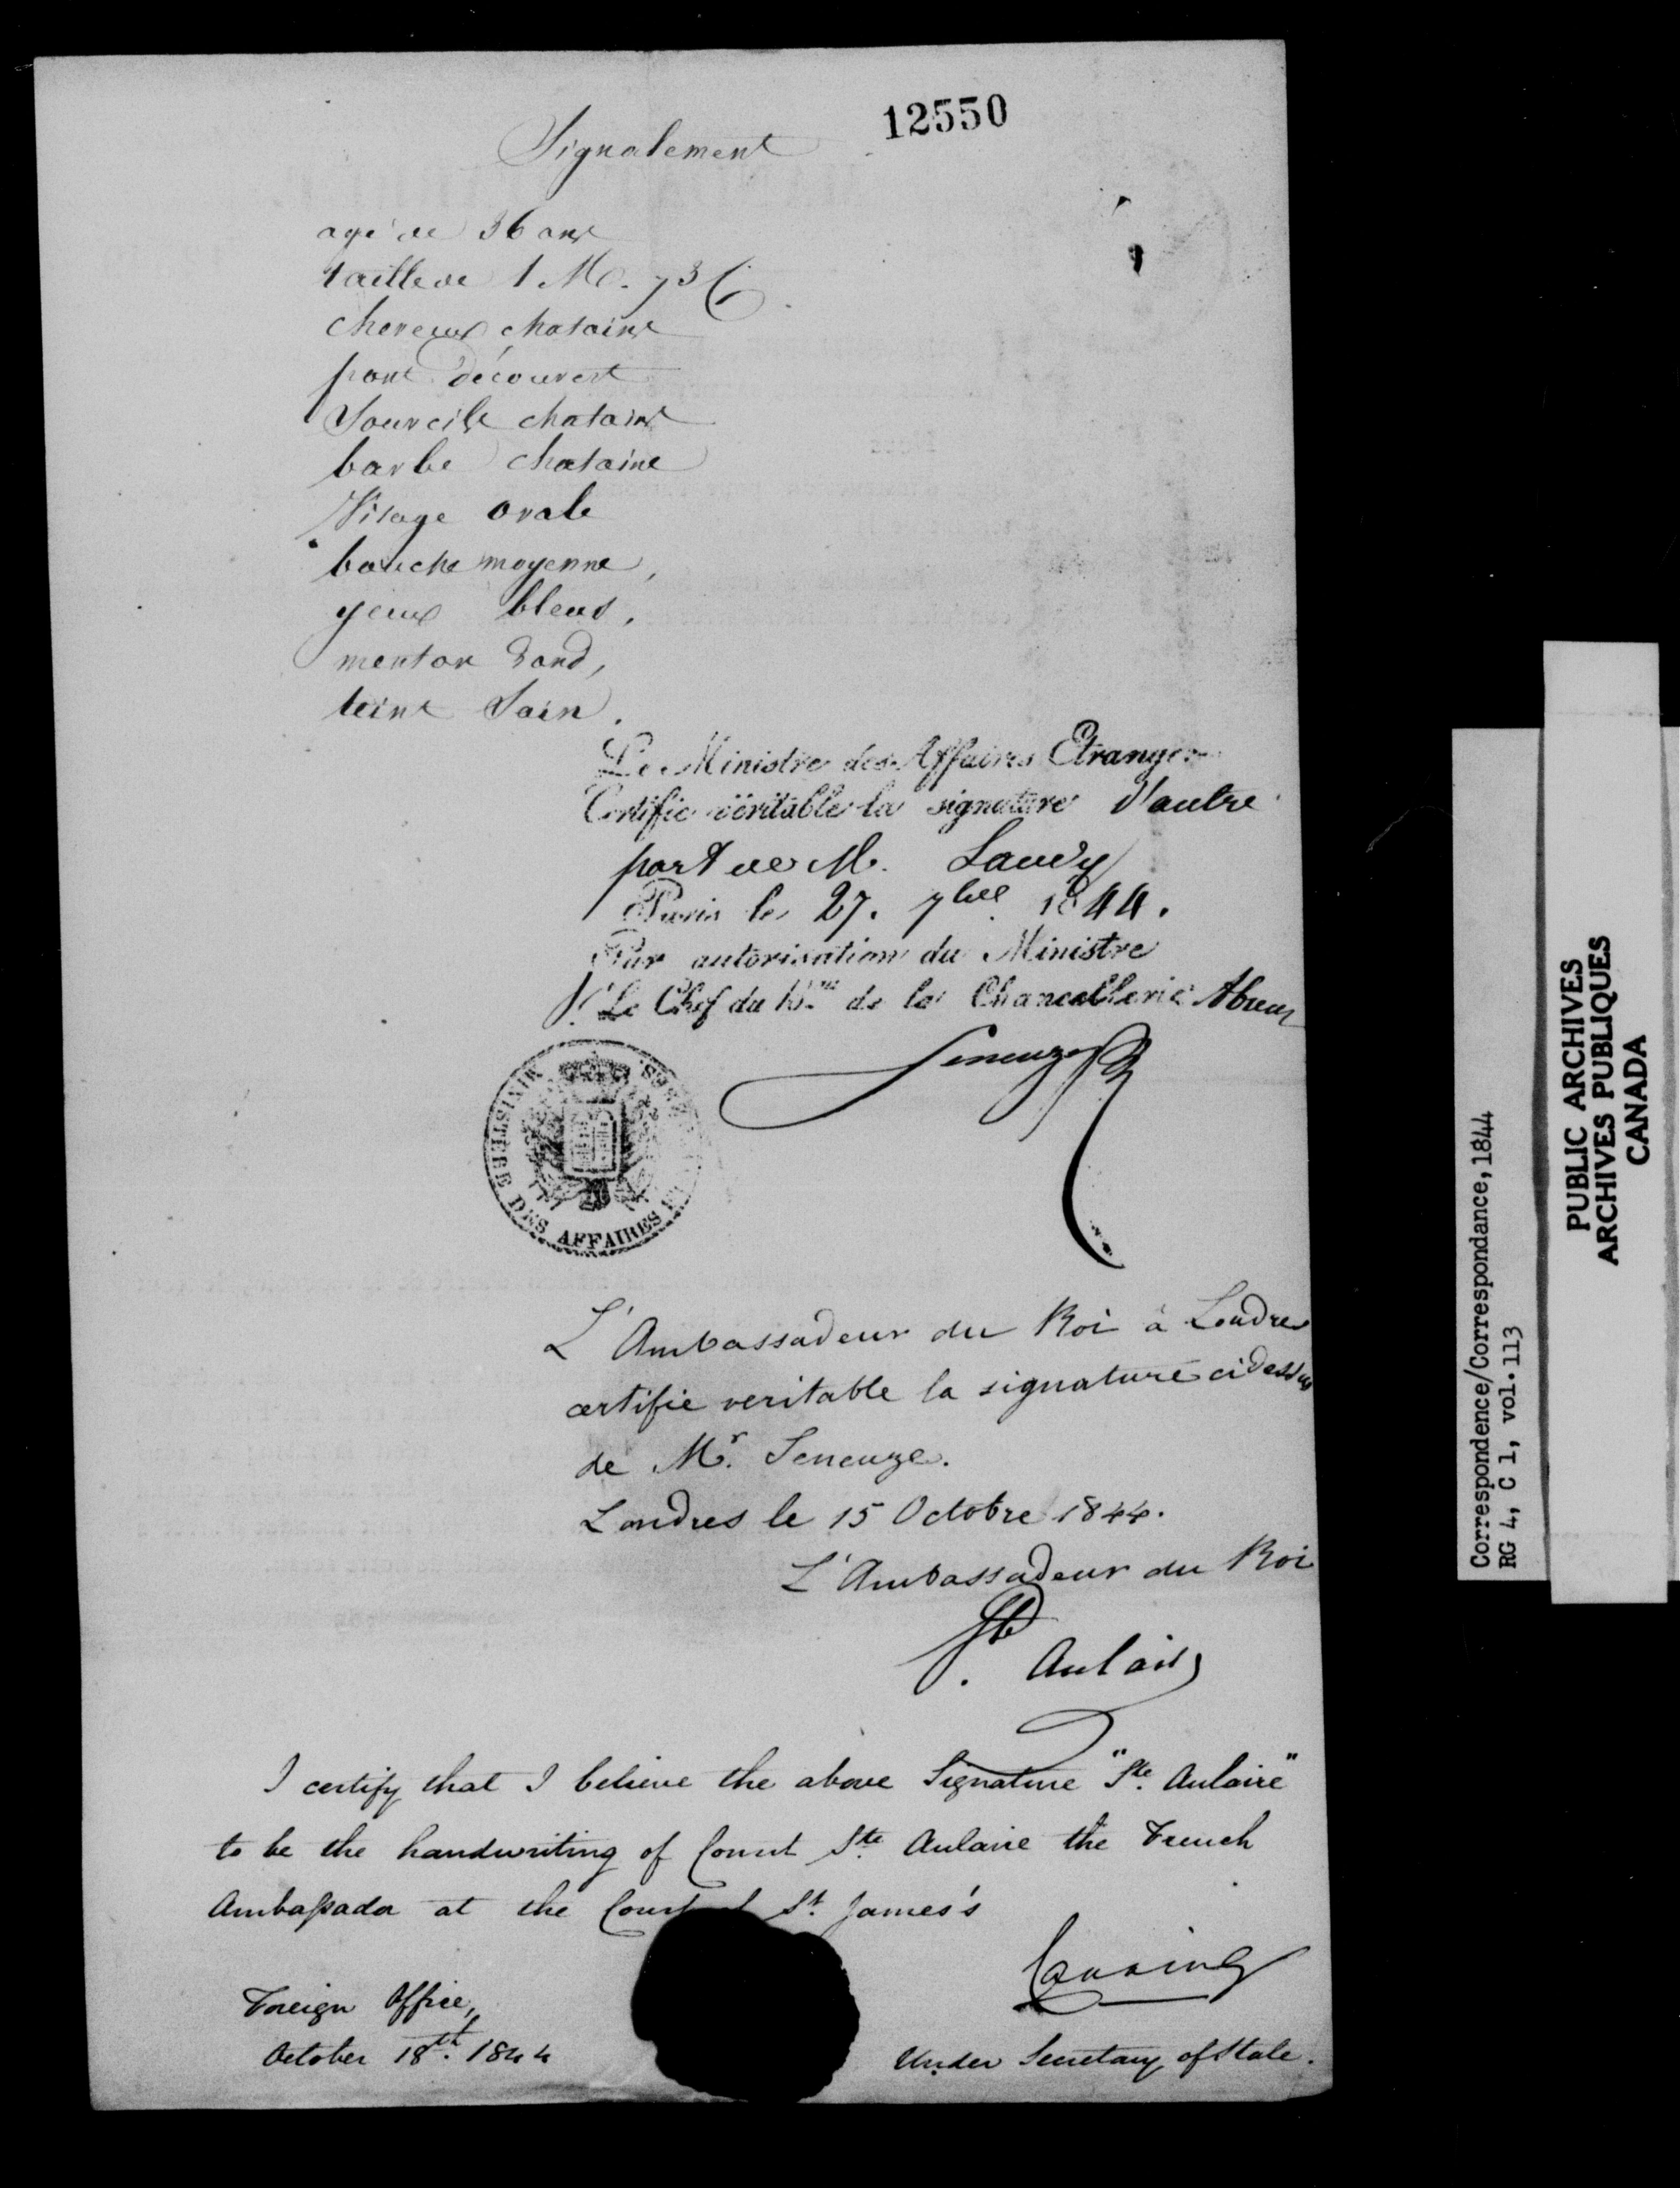 12550
Signalement
agé de 36 ans
taille de 1 M. 73 C.
cheveux chatains
front découvert
Sourcils chatains
barbe chataine
Visage ovale
bouche moyenne,
yeux bleus,
menton rond,
teint Sain.
Le Ministre des Affaires Etrangères
Certifie véritable la signature d'autre
part de M. Landry
Paris le 27. 7bre 1844.
Par autorisation du Ministre
P. Le Chef du Bau de la Chancellerie Absent
Seneuze
MINISTERE DES AFFAIRES
L'Ambassadeur du Roi à Londres
certifie veritable la signature cidessus
de Mr. Seneuze.
Londres le 15 Octobre 1844.
L'Ambassadeur du Roi
Ste. Aulaire
I certify that I believe the above Signature "Ste. Aulaire"
to be the handwriting of Count Ste. Aulaire the French
Ambassador at the Court St. James's
Canning
Foreign Office,
October 18th. 1844
Under Secretary of State.
Correspondence/Correspondance, 1844
RG 4, C 1, vol. 113
PUBLIC ARCHIVES
ARCHIVES PUBLIQUES
CANADA